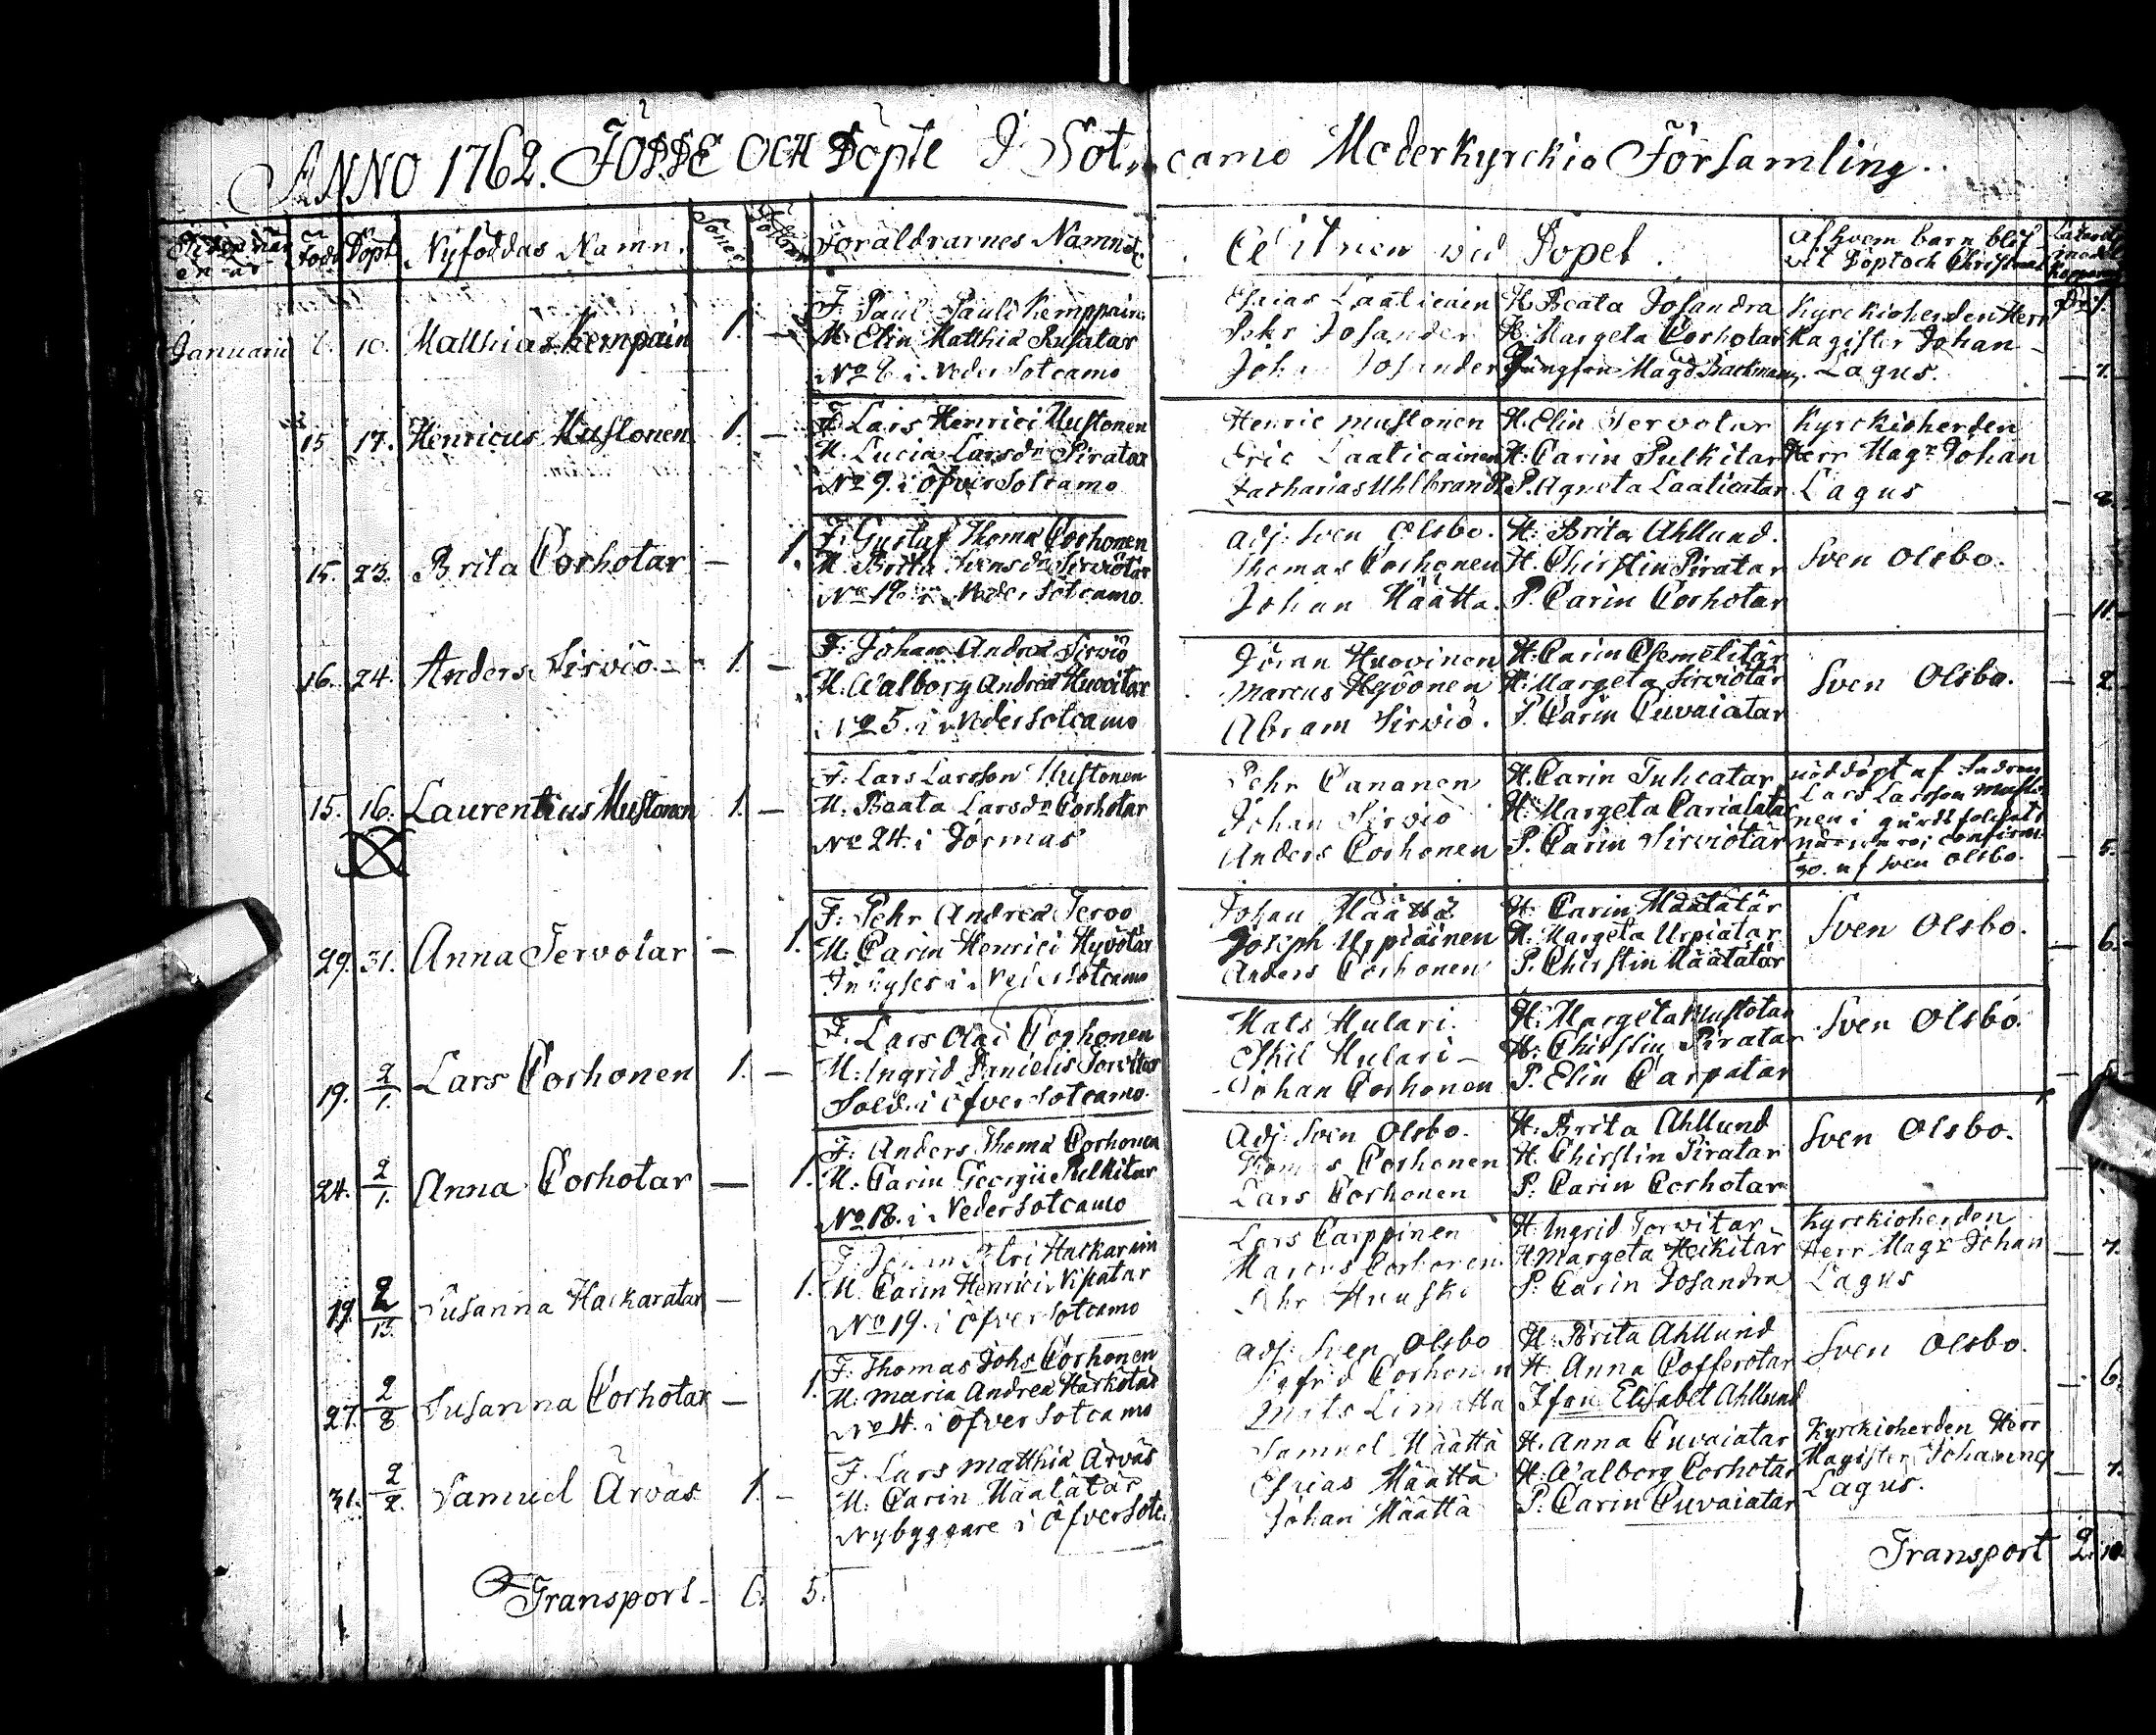 ANNO 1762. FÖDDE OCH Döpte I Sotcamo Moderkyrckio Församling.
Född Döpt Nyföddas Namn. Söner Föräldrarnes Namn &c. Witnen wid Dopet. Af hvem barn blif-
vit döpt och Christnat
Januarii 10. Matthias Kempain 1. —
F. Paul Pauli Kemppain.
M. Elin Matthiæ Rusatar
No 6 i Neder Sotcamo
Esaias Laaticain H. Beata Josandra
Pehr Josander H. Margeta Corhotar
Johan Josander Jungfru Magd. Backman
Kyrckioherden Herr
Magister Johan
Lagus.
7.
15 17. Henricus Mustonen 1. —
F. Lars Henrici Mustonen
M. Lucia Larsdr Piratar
No 9. i Öfver Sotcamo
Henric Mustonen H. Elin Tervotar
Eric Laaticainen H. Carin Pulkitar
Zacharias Uhlbrandt P. Agneta Laaticatar
Kyrckioherden
Herr Magr Johan
Lagus
— 8.
15. 23. Brita Corhotar — 1.
F. Gustaf Thomæ Corhonen
M. Brita Svensdr Sirviötar
No 18 i Neder Sotcamo.
Adj. Sven Olsbo. H. Brita Ahllund.
Thomas Corhonen H. Chirstin Piratar
Johan Määttä. P. Carin Corhotar
Sven Olsbo.
— 11.
16. 24. Anders Sirviö — 1. —
F. Johan Andreæ Sirviö
M. Walborg Andreæ Huovitar
No 5. i Neder Sotcamo
Jöran Huovinen H. Carin Chemelitär
Marcus Hyvönen H. Margeta Sirviötär
Abram Sirwiö. P. Carin Cuvaiatar
Sven Olsbo.
— 2.
15. 16. Laurentius Mustonen 1. —
F. Lars Larsson Mustonen
M. Beata Larsdr Corhotar
No 24. i Jormas
Pehr Cananen H. Carin Tuhcatar
Johan Sirviö H. Margeta Carialatar
Anders Corhonen P. Carin Sirviötär
nöddöpt af Fadren
Lars Larsson Musto-
nen i gårdsfolckets
närwaro; confirm.
30. af Sven Olsbo.
— 5.
29. 31. Anna Tervotar — 1.
F. Pehr Andreæ Tervo
M. Carin Henrici Hyvötär
Inhyses i Neder Sotcamo
Johan Määttä H. Carin Määtätär
Joseph Urpiainen H. Margeta Urpiatar
Anders Corhonen P. Chirstin Määtätär
Sven Olsbo.
— 6.
19. 2/1. Lars Corhonen 1. —
F. Lars Olai Corhonen
M. Ingrid Danielis Torvitar
Sold. i Öfver Sotcamo.
Mats Mulari. H. Margeta Mustotar
Eskil Mulari — H. Chirstin Piratar
Johan Corhonen P. Elin Carpatar
Sven Olsbo.
24. 2/1. Anna Corhotar — 1.
F. Anders Thomæ Corhonen
M. Carin Georgii Pulkitar
No 18. i Neder Sotcamo
Adj. Sven Olsbo. H. Brita Ahllund
Thomas Corhonen H. Chirstin Piratar
Lars Corhonen P. Carin Corhotar
Sven Olsbo.
19. 2/13. Susanna Hackaratar — 1.
F. Johan Petri Hackarain
M. Carin Henrici Nisatar
No 19. i Öfver Sotcamo
Lars Carppinen H. Ingrid Torvitar
Marcus Corhonen H. Margeta Heikitär
Pehr Huusko P. Carin Josandra
Kyrckioherden
Herr Magr Johan
Lagus
— 7.
27. 2/8 Susanna Corhotar — 1.
F. Thomas Johs Corhonen
M. Maria Andreæ Härkötär
No 4. i Öfver Sotcamo
Adj. Sven Olsbo H. Brita Ahllund
Sigfrid Corhonen H. Anna Cofferotar
Mats Limatta Jfru Elisabet Ahllund
Sven Olsbo.
— 6.
31. 2/2. Samuel Arväs 1. —
F. Lars Matthiæ Arväs
M. Carin Määtätär
Nybyggare i Öfver Sotc.
Samuel Määttä H. Anna Cuvaiatar
Esaias Määttä H. Walborg Corhotar
Johan Määttä P. Carin Cuvaiatar
Kyrckioherden Herr
Magister Johannes
Lagus.
— 7.
Transport — 6. 5.
Transport 2. 10.